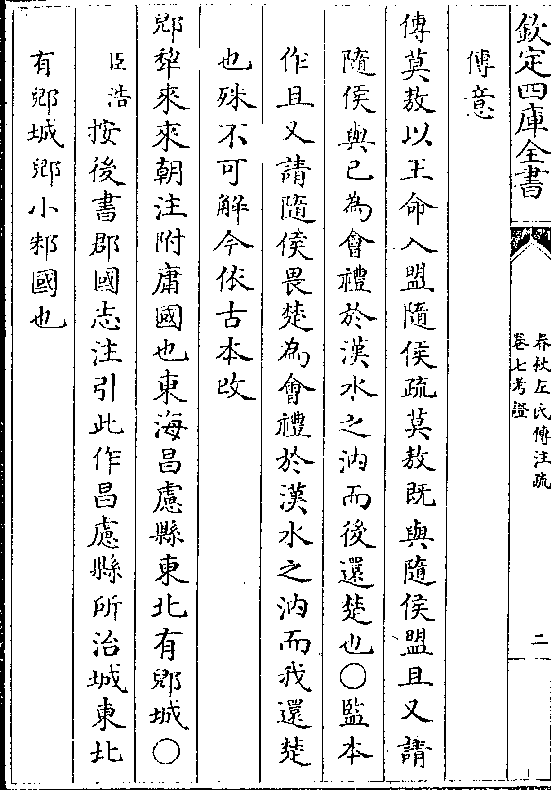 欽定四庫全書
春秋左氏傳注疏
卷七考證
二
傳意
傳莫敖以王命入盟隨侯疏莫敖既與隨侯盟且又請
隨侯與已為會禮於漢水之汭而後還楚也〇監本
作且又請隨侯畏楚為會禮於漢水之汭而我還楚
也殊不可解今依古本改
郳犂來來朝注附庸國也東海昌慮縣東北有郳城〇
臣浩按後書郡國志注引此作昌慮縣所治城東北
有郳城郳小邾國也